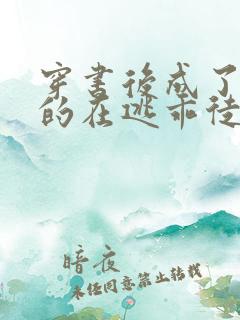 穿书后成了
的在逃乖徒
暗夜
未经同意禁止转载